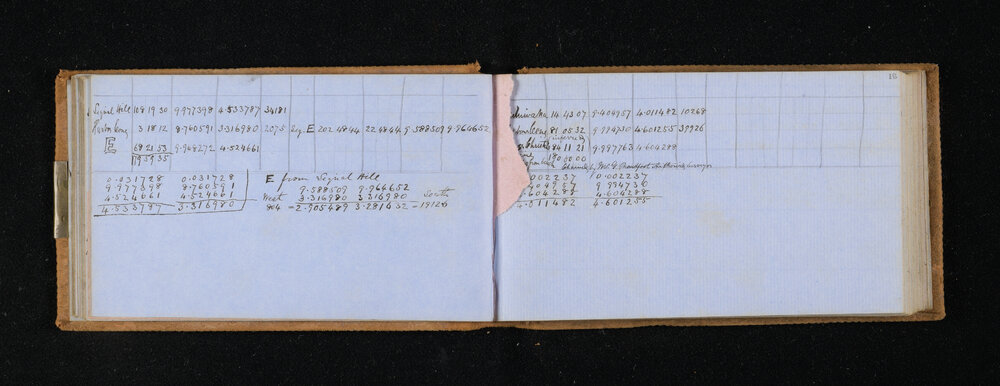 Signal Hill 108 19 30 9.977398 4.533787 34181
3 18 12 8.760591 3.316980 2075 Sig. E 202 48 44 22 48 44 9.588509 9.964652
E 68 21 53 9.968272 4.524661
179 59 35
0.031728 0.031728
9.977398 8.760591
4.524661 4.524661
4.533787 3.316980
E from Signal Hill
9.588509 9.964652 South
West 3.316980 3.316980
804 - 2.905489 3.281632 - 1912.6
16
14 43 07 9.404957 4.011482 10268
81 05 32 9.994730 4.601255 39926
inferred
84 11 21 9.997763 4.604288
0.002237 0.002237
404957 9.994730
.604288 4.604288
4.011482 4.601255